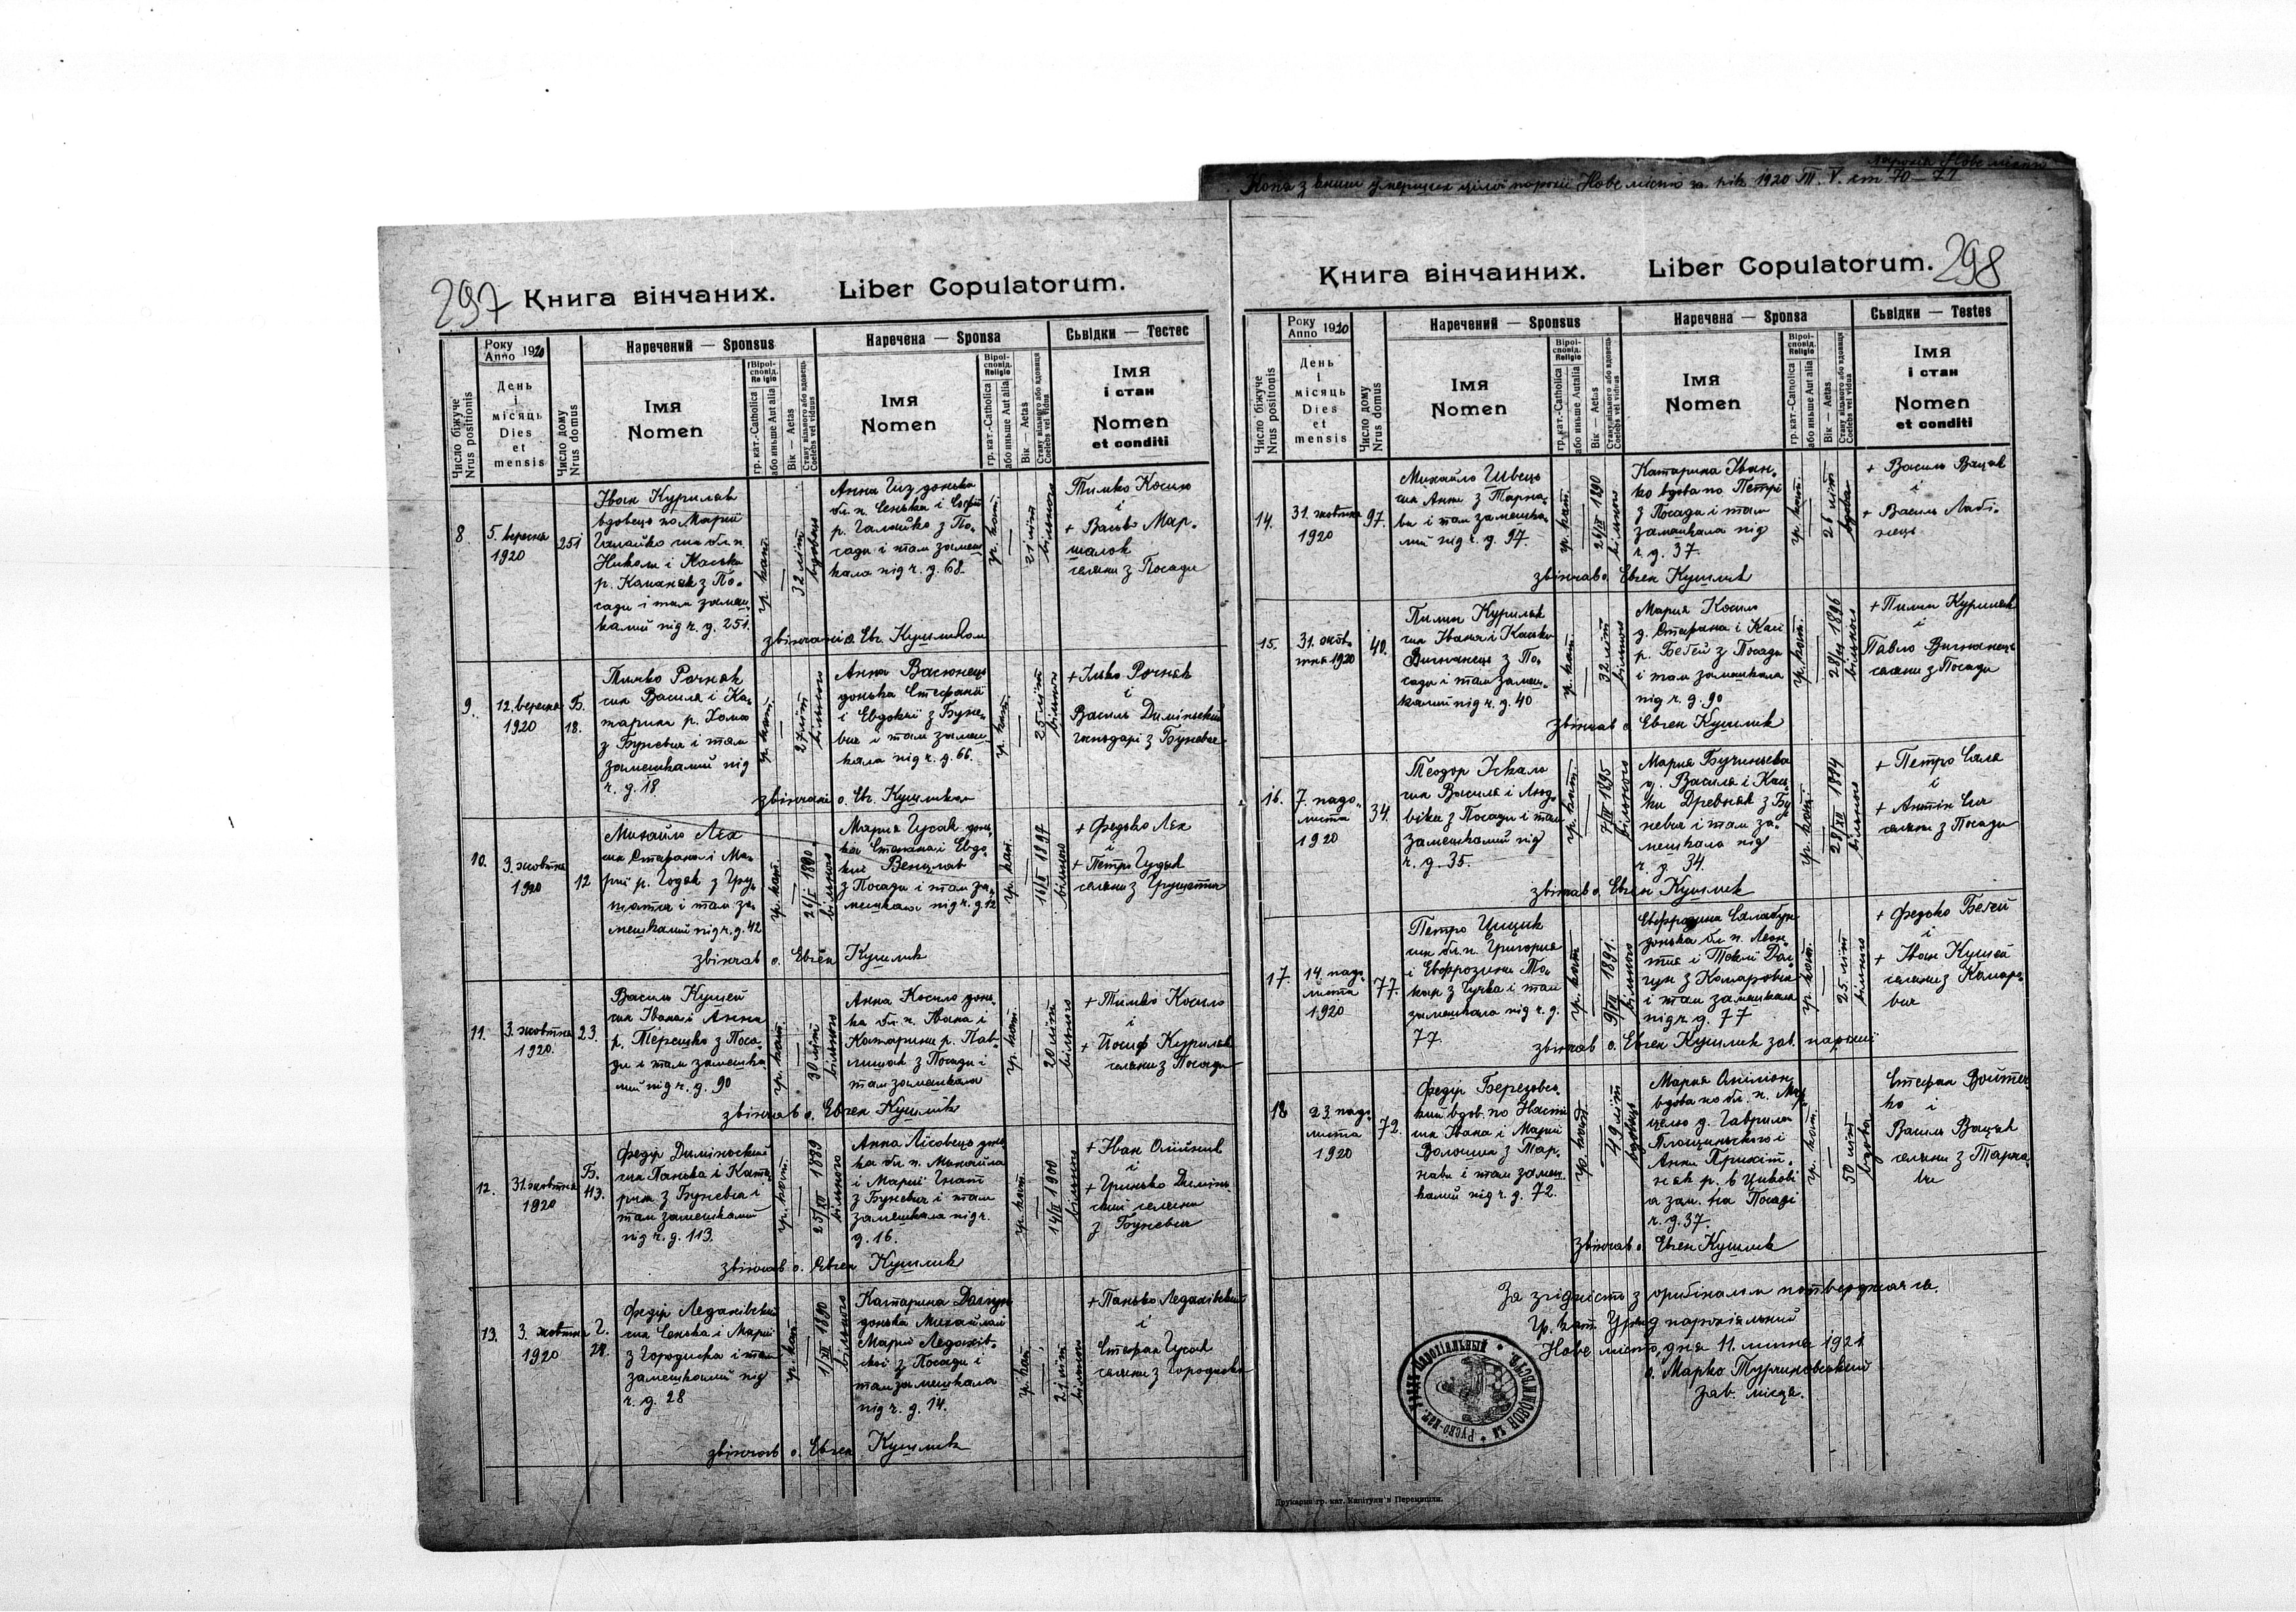 парохія Нове місто
Копія з книги умерших цілої парохії Нове місто за рік 1920 III. V. ст 70–71
297
Книга вінчаних. Liber Copulatorum.
Число біжуче
Nrus positionis
Року
Anno 1920
День
і
місяць
Dies
et
mensis
Число дому
Nrus domus
Наречений — Sponsus
Імя
Nomen
Віроі-
сповід.
Religio
гр. кат.-Catholica
або иньше Aut alia
Вік — Aetas
Стану вільного або вдовець
Coelebs vel viduus
Наречена — Sponsa
Імя
Nomen
Віроі-
сповід.
Religio
гр. кат.-Catholica
або иньше Aut alia
Вік — Aetas
Стану вільного або вдовиця
Coelebs vel vidua
Сьвідки — Тестес
Імя
і стан
Nomen
et conditi
8.
5. вересня
1920
251
Іван Куриляк
вдовець по Марії
син бл. п.
Николи і Каськи
з По-
сади і там замеш-
калий під ч. д. 251.
гр. кат.
32 літ
вдовець
Анна Гиз донька
бл. п. Сенька і Софії
р. Галайко з По-
сади і там замеш
кала під ч. д. 68.
гр. кат.
21 літ
вільного
Тимко Косило
і
+ Васько Мар-
шалок
селяни з Посади
звінчані о. Евг. Кушликом
9.
12. вересня
1920
Б.
18.
Тимко Рочняк
син Василя і Ка-
тарини р. Хома
з Буневич і там
замешкалий під
ч. д. 18.
гр. кат.
27 літ
вільного
Анна Васюнець
донька Стефана
і Евдокії з Буне-
вич і там замеш-
кала під ч. д. 66.
гр. кат.
25 літ
вільного
+ Ілько Рочняк
і
Василь Димінський
господарі з Буневич
звінчані о. Евг. Кушликом
10.
3. жовтня
1920
12
Михайло Лех
син Стефана і Ма-
рії р. Годяк з Гру-
шатич і там за-
мешкалий під ч. д. 42
гр. кат.
26/I 1890
вільного
Мария Гусак донь-
ка Степана і Евдо-
кії
з Посади і там за-
мешкала під ч. д. 12
гр. кат.
16/II 1897
вільного
+ Федько Лех
і
+ Петро Гудяк
селяни з Грушатич
звінчав о. Евген Кушлик
11.
3. жовтня
1920.
23.
Василь Кушей
син Івана і Анни
р. Терешко з Поса-
ди і там замешка-
лий під ч. д. 90
гр. кат.
30 літ
вільного
Анна Косило донь-
ка бл. п. Івана і
Катарини р. Пав-
лишак з Посади і
там замешкала
гр. кат.
20 літ
вільного
+ Тимко Косило
і
+ Йосиф Куриляк
селяни з Посади
звінчав о. Евген Кушлик
12.
31. жовтня
1920
Б.
113.
Федір Димінський
син Панька і Ката-
рини з Буневич і
там замешкалий
під ч. д. 113.
гр. кат.
25/XII 1889
вільного
Анна Лісовець донь
ка бл. п. Михайла
і Марії Гнат
з Буневич і там
замешкала під ч.
д. 16.
гр. кат.
14/II 1900
вільного
+ Іван Олійник
і
+ Гринько Димінь-
ский селяни
з Буневич
звінчав о. Евген Кушлик
13.
3. жовтня
1920
Г.
28.
Федір Ледахівский
син Сенька і Марії
з Городиска і там
замешкалий під
ч. д. 28
гр. кат.
1/XII 1890
вільного
Катарина
донька Михайла і
Марії Ледахів-
скої з Посади і
там замешкала
під ч. д. 14.
гр. кат.
21 літ
вільного
+ Панько Ледахівский
і
Стефан Гусак
селяни з Городиска
звінчав о. Евген Кушлик
298
Книга вінчаиних. Liber Copulatorum.
Число біжуче
Nrus positionis
Року
Anno 1920
День
і
місяць
Dies
et
mensis
Число дому
Nrus domus
Наречений — Sponsus
Імя
Nomen
Віроі-
сповід.
Religio
гр. кат.-Catholica
або иньше Aut alia
Вік — Aetas
Стану вільного або вдовець
Coelebs vel viduus
Наречена — Sponsa
Імя
Nomen
Віроі-
сповід.
Religio
гр. кат.-Catholica
або иньше Aut alia
Вік — Aetas
Стану вільного або вдовиця
Coelebs vel vidua
Сьвідки — Testes
Імя
і стан
Nomen
et conditi
14.
31. жовтня
1920
97.
Михайло Швець
син Анни з Тарна-
ви і там замешка-
лий під ч. д. 97.
гр. кат.
26/IX 1890
вільного
Катарина Іван-
ко вдова по Петрі
з Посади і там
замешкала під
ч. д. 37.
гр. кат.
26 літ
вдова
+ Василь Вацак
і
+ Василь Лабі-
нець
звінчав о. Евген Кушлик
15.
31. жов-
тня 1920
40.
Пилип Куриляк
син Івана і Каськи
Вигнанець з По-
сади і там замеш-
калий під ч. д. 40
гр. кат.
32 літ
вільного
Мария Косило
д. Стефана і Касі
р. Бегей з Посади
і там замешкала
під ч. д. 90
гр. кат.
1896
вільного
+ Пилип Куриляк
і
Павло Вигнанець
селяни з Посади
звінчав о. Евген Кушлик
16.
7. падо-
листа
1920
34.
Теодор
син Василя і Люд-
віки з Посади і там
замешкалий під
ч. д. 35.
гр. кат.
1895
вільного
Мария Бучинська
д. Василя і Кась-
ки Древняк з Бу
невич і там за-
мешкала під
ч. д. 34.
гр. кат.
вільного
+ Петро Сяля
і
+ Антін
селяни з Посади
звінчав о. Евген Кушлик
17.
14. падо-
листа
1920
77.
Петро Цицик
син бл. п. Григория
і Евфрозини То-
кар з Гучка і там
замешкала під ч. д.
77.
гр. кат.
9/VII 1891.
вільного
Евфрозина
донька бл. п. Леон-
тия і Теклі
з Комарович
і там замешкала
під ч. д. 77
гр. кат.
25. літ
вільного
+ Федько Бегей
і
+ Іван Кушей
селяни з Комаро-
вич
звінчав о. Евген Кушлик зав. парохії
18
23. падо-
листа
1920
72.
Федір Березовс-
кий вдов. по Насті
син Івана і Марії
Волошин з Тар-
нави і там замеш
калий під ч. д. 72.
гр. кат.
49 літ
вдовець
Мария
вдова по бл. п.
д. Гаврила
Площаньского і
Анни
а зам. на Посаді
ч. д. 37.
гр. кат.
50 літ
вдова
Стефан Войтеч-
ко і
Василь Вацак
селяни з Тарна-
ви
звінчав о. Евген Кушлик
За згідність з оригіналом потверджая ся.
Гр. кат. Уряд парохіяльний
Нове місто, дня 11. липня 1921
о. Марко Турчиновський
зав. місце.
Руско-кат. Урядъ Парохіальный
Друкарня гр. кат. Капітули в Перемишли.